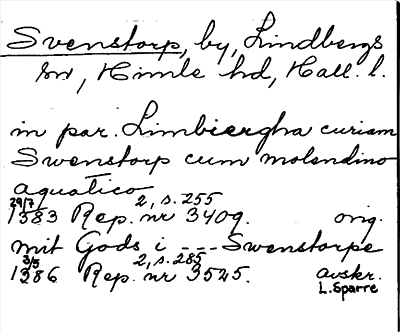 Svenstorp, by, Lindbergs
sn, Himle hd, Hall. l.
in par. Limbiergha curiam
Swenstorp cum molendino
aquatico
29/7 2, s. 255
1383 Rep. nr 3409. orig.
mit Gods i --- Swenstorpe
3/5 2, s. 285
1386 Rep. nr 3545. avskr.
L. Sparre